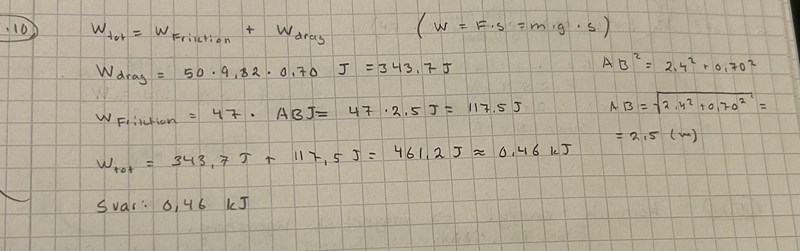 .10) W_tot = W_Friction + W_drag (W = F·s = m·g·s)
W_drag = 50·9,82·0,70 J = 343,7 J
AB² = 2,4² + 0,70²
W_Friction = 47 · ABJ = 47·2,5 J = 117,5 J
AB = √2,4² + 0,70² =
= 2,5 (m)
W_tot = 343,7 J + 117,5 J = 461,2 J ≈ 0,46 kJ
Svar: 0,46 kJ